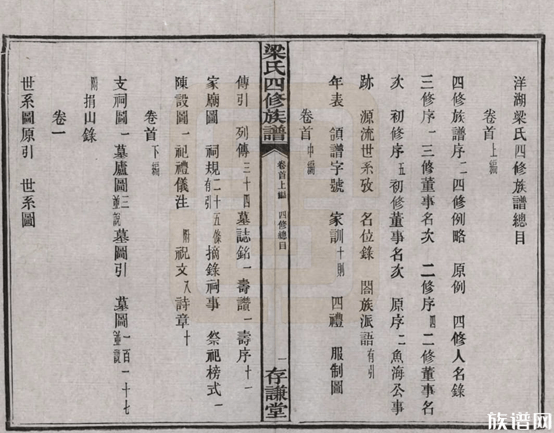 洋湖梁氏四修族譜總目
卷首上編
四修族譜序二 四修例略 原例 四修人名錄
三修序一 三修董事名次 二修序四 二修董事名
次 初修序五 初修董事名次 原序二 魚海公事
跡 源流世系攷 名位錄 闔族派語有引
年表 領譜字號 家訓十則 四禮 服制圖
卷首中編
梁氏四修族譜
卷首上編 四修總目
一
存謙堂
傳引 列傳三十四 墓誌銘一 壽讚一 壽序十一
家廟圖 祠規二十五條有引 摘錄祠事 祭祀榜式一
陳設圖一 祀禮儀注 附祝文八 詩章十
卷首下編
支祠圖一 墓廬圖三並說 墓圖引 墓圖一百一十七並說
附捐山錄
卷一
世系圖原引 世系圖
族谱网